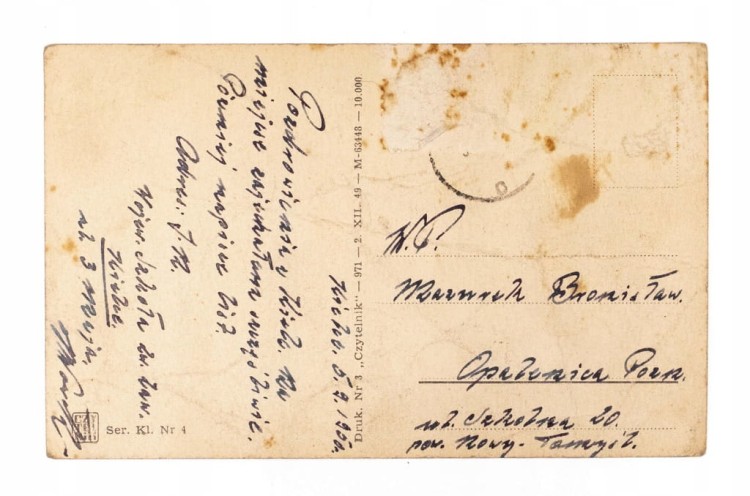 Kielce. 5.9.1950.
Pozdrowienia z Kielc. Na
miejsce zajechałam szczęśliwie.
Później napiszę list
Adres: J. M.
Wojew. Szkoła
Kielce.
ul. 3 Maja.
Druk. Nr 3 „Czytelnik” — 971 — 2. XII. 49 — M-63448 — 10.000
Ser. Kl. Nr 4
W. P.
Mazurek Bronisław.
Opalenica Pozn.
ul. Szkolna 20.
pow. Nowy-Tomyśl.